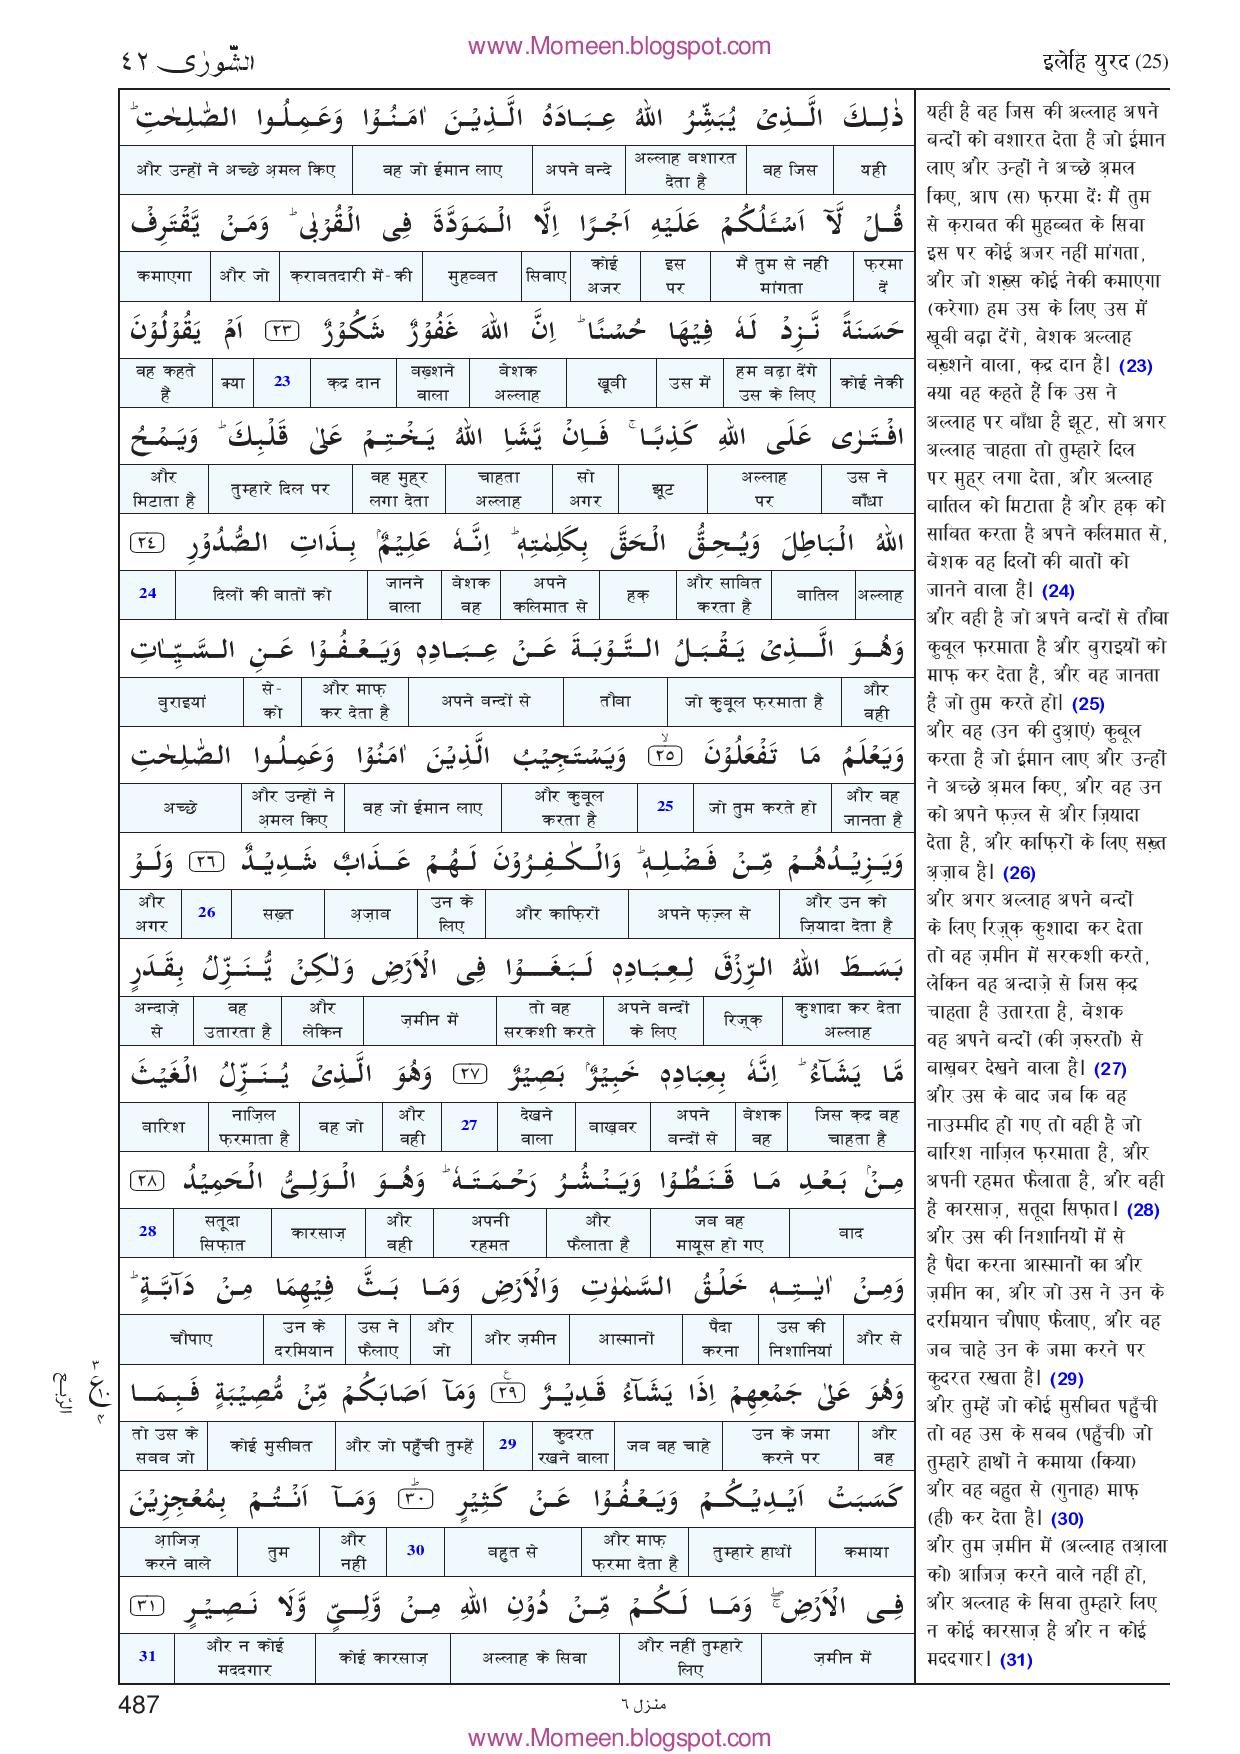 www.Momeen.blogspot.com
الشّورٰی ٤٢
इलेहि युरद (25)
ذٰلِكَ الَّذِیْ یُبَشِّرُ اللهُ عِبَادَهُ الَّذِیْنَ اٰمَنُوْا وَعَمِلُوا الصّٰلِحٰتِ ؕ
यही | वह जिस | अल्लाह बशारत देता है | अपने बन्दे | वह जो ईमान लाए | और उन्हों ने अच्छे अ़मल किए
قُلْ لَّاۤ اَسْـَٔلُكُمْ عَلَیْهِ اَجْرًا اِلَّا الْمَوَدَّةَ فِی الْقُرْبٰی ؕ وَمَنْ یَّقْتَرِفْ
फ़रमा दें | मैं तुम से नहीं मांगता | इस पर | कोई अजर | सिवाए | मुहब्बत | क़राबतदारी में-की | और जो | कमाएगा
حَسَنَةً نَّزِدْ لَهٗ فِیْهَا حُسْنًا ؕ اِنَّ اللهَ غَفُوْرٌ شَكُوْرٌ ٢٣ اَمْ یَقُوْلُوْنَ
कोई नेकी | हम बढ़ा देंगे उस के लिए | उस में | ख़ूबी | बेशक अल्लाह | बख़्शने वाला | क़द्र दान | 23 | क्या | वह कहते हैं
افْتَرٰی عَلَی اللهِ كَذِبًا ۚ فَاِنْ یَّشَاِ اللهُ یَخْتِمْ عَلٰی قَلْبِكَ ؕ وَیَمْحُ
उस ने बाँधा | अल्लाह पर | झूट | सो अगर | चाहता अल्लाह | वह मुहर लगा देता | तुम्हारे दिल पर | और मिटाता है
اللهُ الْبَاطِلَ وَیُحِقُّ الْحَقَّ بِكَلِمٰتِهٖ ؕ اِنَّهٗ عَلِیْمٌۢ بِذَاتِ الصُّدُوْرِ ٢٤
अल्लाह | बातिल | और साबित करता है | हक़ | अपने कलिमात से | बेशक वह | जानने वाला | दिलों की बातों को | 24
وَهُوَ الَّذِیْ یَقْبَلُ التَّوْبَةَ عَنْ عِبَادِهٖ وَیَعْفُوْا عَنِ السَّیِّاٰتِ
और वही | जो कुबूल फ़रमाता है | तौबा | अपने बन्दों से | और माफ़ कर देता है | से-को | बुराइयां
وَیَعْلَمُ مَا تَفْعَلُوْنَ ٢٥ۙ وَیَسْتَجِیْبُ الَّذِیْنَ اٰمَنُوْا وَعَمِلُوا الصّٰلِحٰتِ
और वह जानता है | जो तुम करते हो | 25 | और कुबूल करता है | वह जो ईमान लाए | और उन्हों ने अ़मल किए | अच्छे
وَیَزِیْدُهُمْ مِّنْ فَضْلِهٖ ؕ وَالْكٰفِرُوْنَ لَهُمْ عَذَابٌ شَدِیْدٌ ٢٦ وَلَوْ
और उन को ज़ियादा देता है | अपने फ़ज़्ल से | और काफ़िरों | उन के लिए | अ़ज़ाब | सख़्त | 26 | और अगर
بَسَطَ اللهُ الرِّزْقَ لِعِبَادِهٖ لَبَغَوْا فِی الْاَرْضِ وَلٰكِنْ یُّنَزِّلُ بِقَدَرٍ
कुशादा कर देता अल्लाह | रिज़्क़ | अपने बन्दों के लिए | तो वह सरकशी करते | ज़मीन में | और लेकिन | वह उतारता है | अन्दाज़े से
مَّا یَشَآءُ ؕ اِنَّهٗ بِعِبَادِهٖ خَبِیْرٌۢ بَصِیْرٌ ٢٧ وَهُوَ الَّذِیْ یُنَزِّلُ الْغَیْثَ
जिस क़द्र वह चाहता है | बेशक वह | अपने बन्दों से | बाख़बर | देखने वाला | 27 | और वही | वह जो | नाज़िल फ़रमाता है | बारिश
مِنْۢ بَعْدِ مَا قَنَطُوْا وَیَنْشُرُ رَحْمَتَهٗ ؕ وَهُوَ الْوَلِیُّ الْحَمِیْدُ ٢٨
बाद | जब वह मायूस हो गए | और फैलाता है | अपनी रहमत | और वही | कारसाज़ | सतूदा सिफ़ात | 28
وَمِنْ اٰیٰتِهٖ خَلْقُ السَّمٰوٰتِ وَالْاَرْضِ وَمَا بَثَّ فِیْهِمَا مِنْ دَآبَّةٍ ؕ
और से | उस की निशानियां | पैदा करना | आस्मानों | और ज़मीन | और जो | उस ने फैलाए | उन के दरमियान | चौपाए
وَهُوَ عَلٰی جَمْعِهِمْ اِذَا یَشَآءُ قَدِیْرٌ ٢٩ع وَمَاۤ اَصَابَكُمْ مِّنْ مُّصِیْبَةٍ فَبِمَا
और वह | उन के जमा करने पर | जब वह चाहे | कुदरत रखने वाला | 29 | और जो पहुँची तुम्हें | कोई मुसीबत | तो उस के सबब जो
كَسَبَتْ اَیْدِیْكُمْ وَیَعْفُوْا عَنْ كَثِیْرٍ ٣٠ؕ وَمَاۤ اَنْتُمْ بِمُعْجِزِیْنَ
कमाया | तुम्हारे हाथों | और माफ़ फ़रमा देता है | बहुत से | 30 | और नहीं | तुम | आ़जिज़ करने वाले
فِی الْاَرْضِ ۖۚ وَمَا لَكُمْ مِّنْ دُوْنِ اللهِ مِنْ وَّلِیٍّ وَّلَا نَصِیْرٍ ٣١
ज़मीन में | और नहीं तुम्हारे लिए | अल्लाह के सिवा | कोई कारसाज़ | और न कोई मददगार | 31
यही है वह जिस की अल्लाह अपने
बन्दों को बशारत देता है जो ईमान
लाए और उन्हों ने अच्छे अ़मल
किए, आप (स) फ़रमा देंः मैं तुम
से क़राबत की मुहब्बत के सिवा
इस पर कोई अजर नहीं मांगता,
और जो शख़्स कोई नेकी कमाएगा
(करेगा) हम उस के लिए उस में
ख़ूबी बढ़ा देंगे, बेशक अल्लाह
बख़्शने वाला, क़द्र दान है। (23)
क्या वह कहते हैं कि उस ने
अल्लाह पर बाँधा है झूट, सो अगर
अल्लाह चाहता तो तुम्हारे दिल
पर मुहर लगा देता, और अल्लाह
बातिल को मिटाता है और हक़ को
साबित करता है अपने कलिमात से,
बेशक वह दिलों की बातों को
जानने वाला है। (24)
और वही है जो अपने बन्दों से तौबा
कुबूल फ़रमाता है और बुराइयों को
माफ़ कर देता है, और वह जानता
है जो तुम करते हो। (25)
और वह (उन की दुआ़एं) कुबूल
करता है जो ईमान लाए और उन्हों
ने अच्छे अ़मल किए, और वह उन
को अपने फ़ज़्ल से और ज़ियादा
देता है, और काफ़िरों के लिए सख़्त
अ़ज़ाब है। (26)
और अगर अल्लाह अपने बन्दों
के लिए रिज़्क़ कुशादा कर देता
तो वह ज़मीन में सरकशी करते,
लेकिन वह अन्दाज़े से जिस क़द्र
चाहता है उतारता है, बेशक
वह अपने बन्दों (की ज़रुरतों) से
बाख़बर देखने वाला है। (27)
और उस के बाद जब कि वह
नाउम्मीद हो गए तो वही है जो
बारिश नाज़िल फ़रमाता है, और
अपनी रहमत फैलाता है, और वही
है कारसाज़, सतूदा सिफ़ात। (28)
और उस की निशानियों में से
है पैदा करना आस्मानों का और
ज़मीन का, और जो उस ने उन के
दरमियान चौपाए फैलाए, और वह
जब चाहे उन के जमा करने पर
कुदरत रखता है। (29)
और तुम्हें जो कोई मुसीबत पहुँची
तो वह उस के सबब (पहुँची) जो
तुम्हारे हाथों ने कमाया (किया)
और वह बहुत से (गुनाह) माफ़
(ही) कर देता है। (30)
और तुम ज़मीन में (अल्लाह तआ़ला
को) आजिज़ करने वाले नहीं हो,
और अल्लाह के सिवा तुम्हारे लिए
न कोई कारसाज़ है और न कोई
मददगार। (31)
الرّبع
٣ ع ١٠ ٤
487
منزل ٦
www.Momeen.blogspot.com